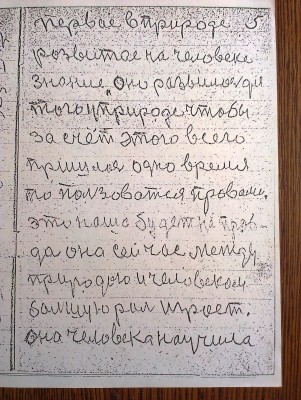 первае в природе 5
розвитае на человека
знание. Оно развилоз для
того у природе чтобы
за счёт этого всего
одно время
то ползоватся правами.
это наша будет на прав-
да она сейчас между
природою и человеком
болшую рал играет.
она человека научила